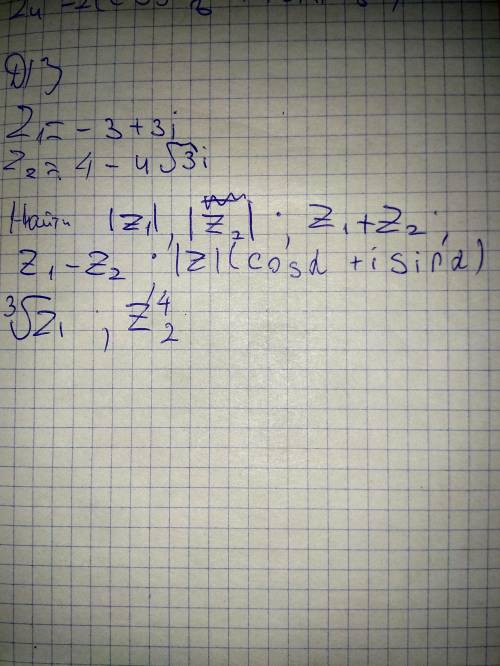 Д/З
Z₁ = -3 + 3i
Z₂ = 4 - 4√3i
Найти |Z₁|, |Z₂|; Z₁+Z₂;
Z₁-Z₂; |Z|(cosα + i sinα)
³√Z₁ ; Z₂⁴